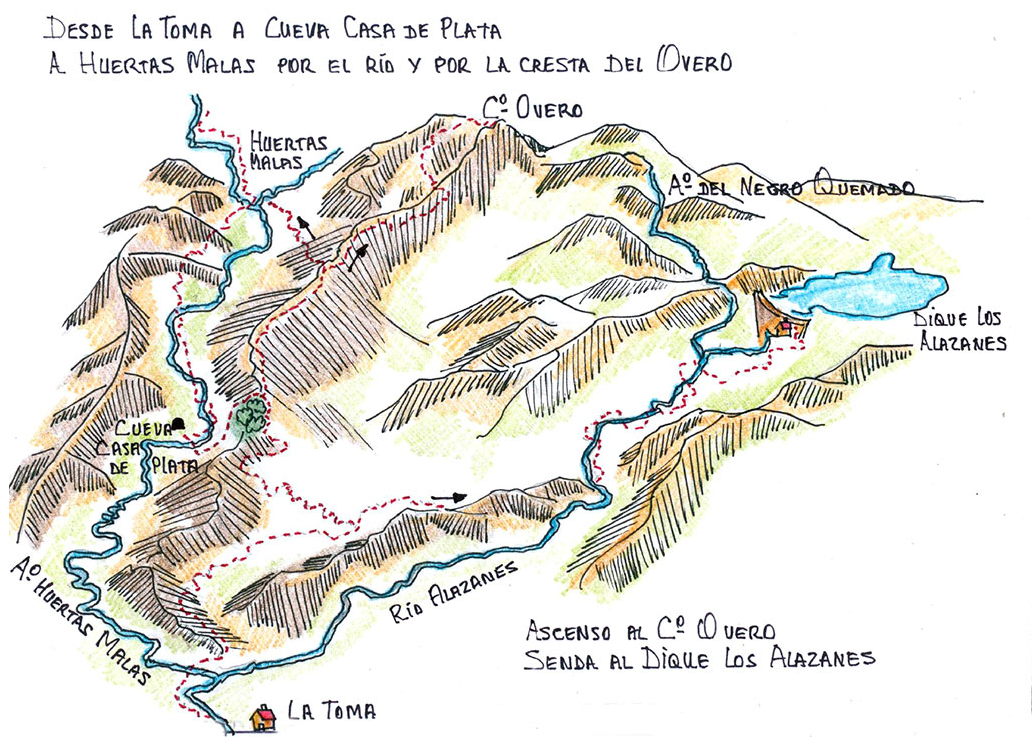 DESDE LA TOMA A CUEVA CASA DE PLATA
A HUERTAS MALAS POR EL RÍO Y POR LA CRESTA DEL OVERO
Cº OVERO
HUERTAS
MALAS
Aº DEL NEGRO QUEMADO
DIQUE LOS
ALAZANES
CUEVA
CASA
DE PLATA
Aº HUERTAS MALAS
RÍO ALAZANES
ASCENSO AL Cº OVERO
SENDA AL DIQUE LOS ALAZANES
LA TOMA